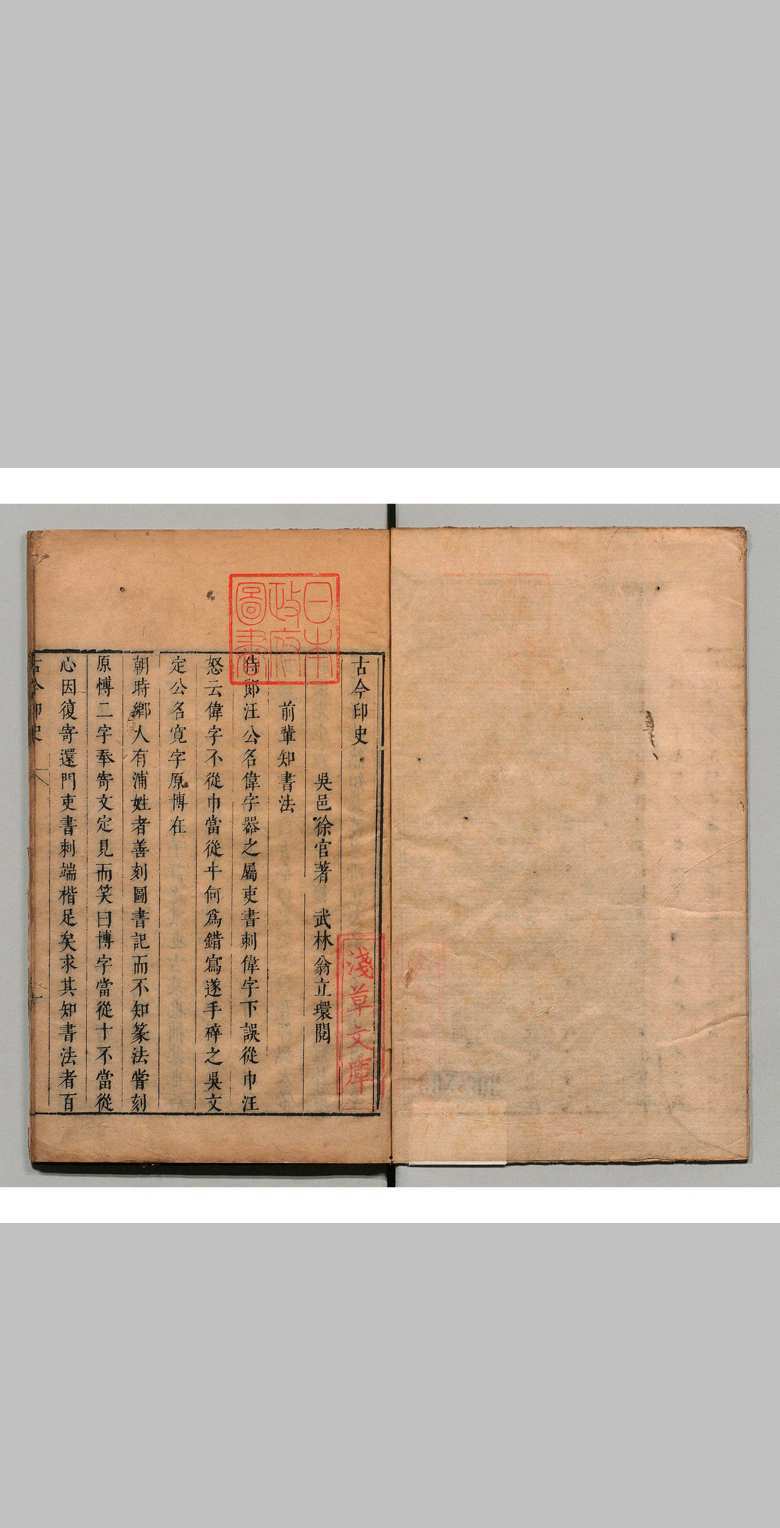 古今印史
吳邑徐官著　武林翁立環閱
前輩知書法
侍郎汪公名偉字器之屬吏書刺偉字下誤從巾汪
怒云偉字不從巾當從㐄何爲錯寫遂手碎之吳文
定公名寬字原博在
朝時鄉人有浦姓者善刻圖書記而不知篆法嘗刻
原愽二字奉寄文定見而笑曰博字當從十不當從
心因復寄還門吏書刺端楷足矣求其知書法者百
古今印史
一
日本
政府
圖書
淺草文庫